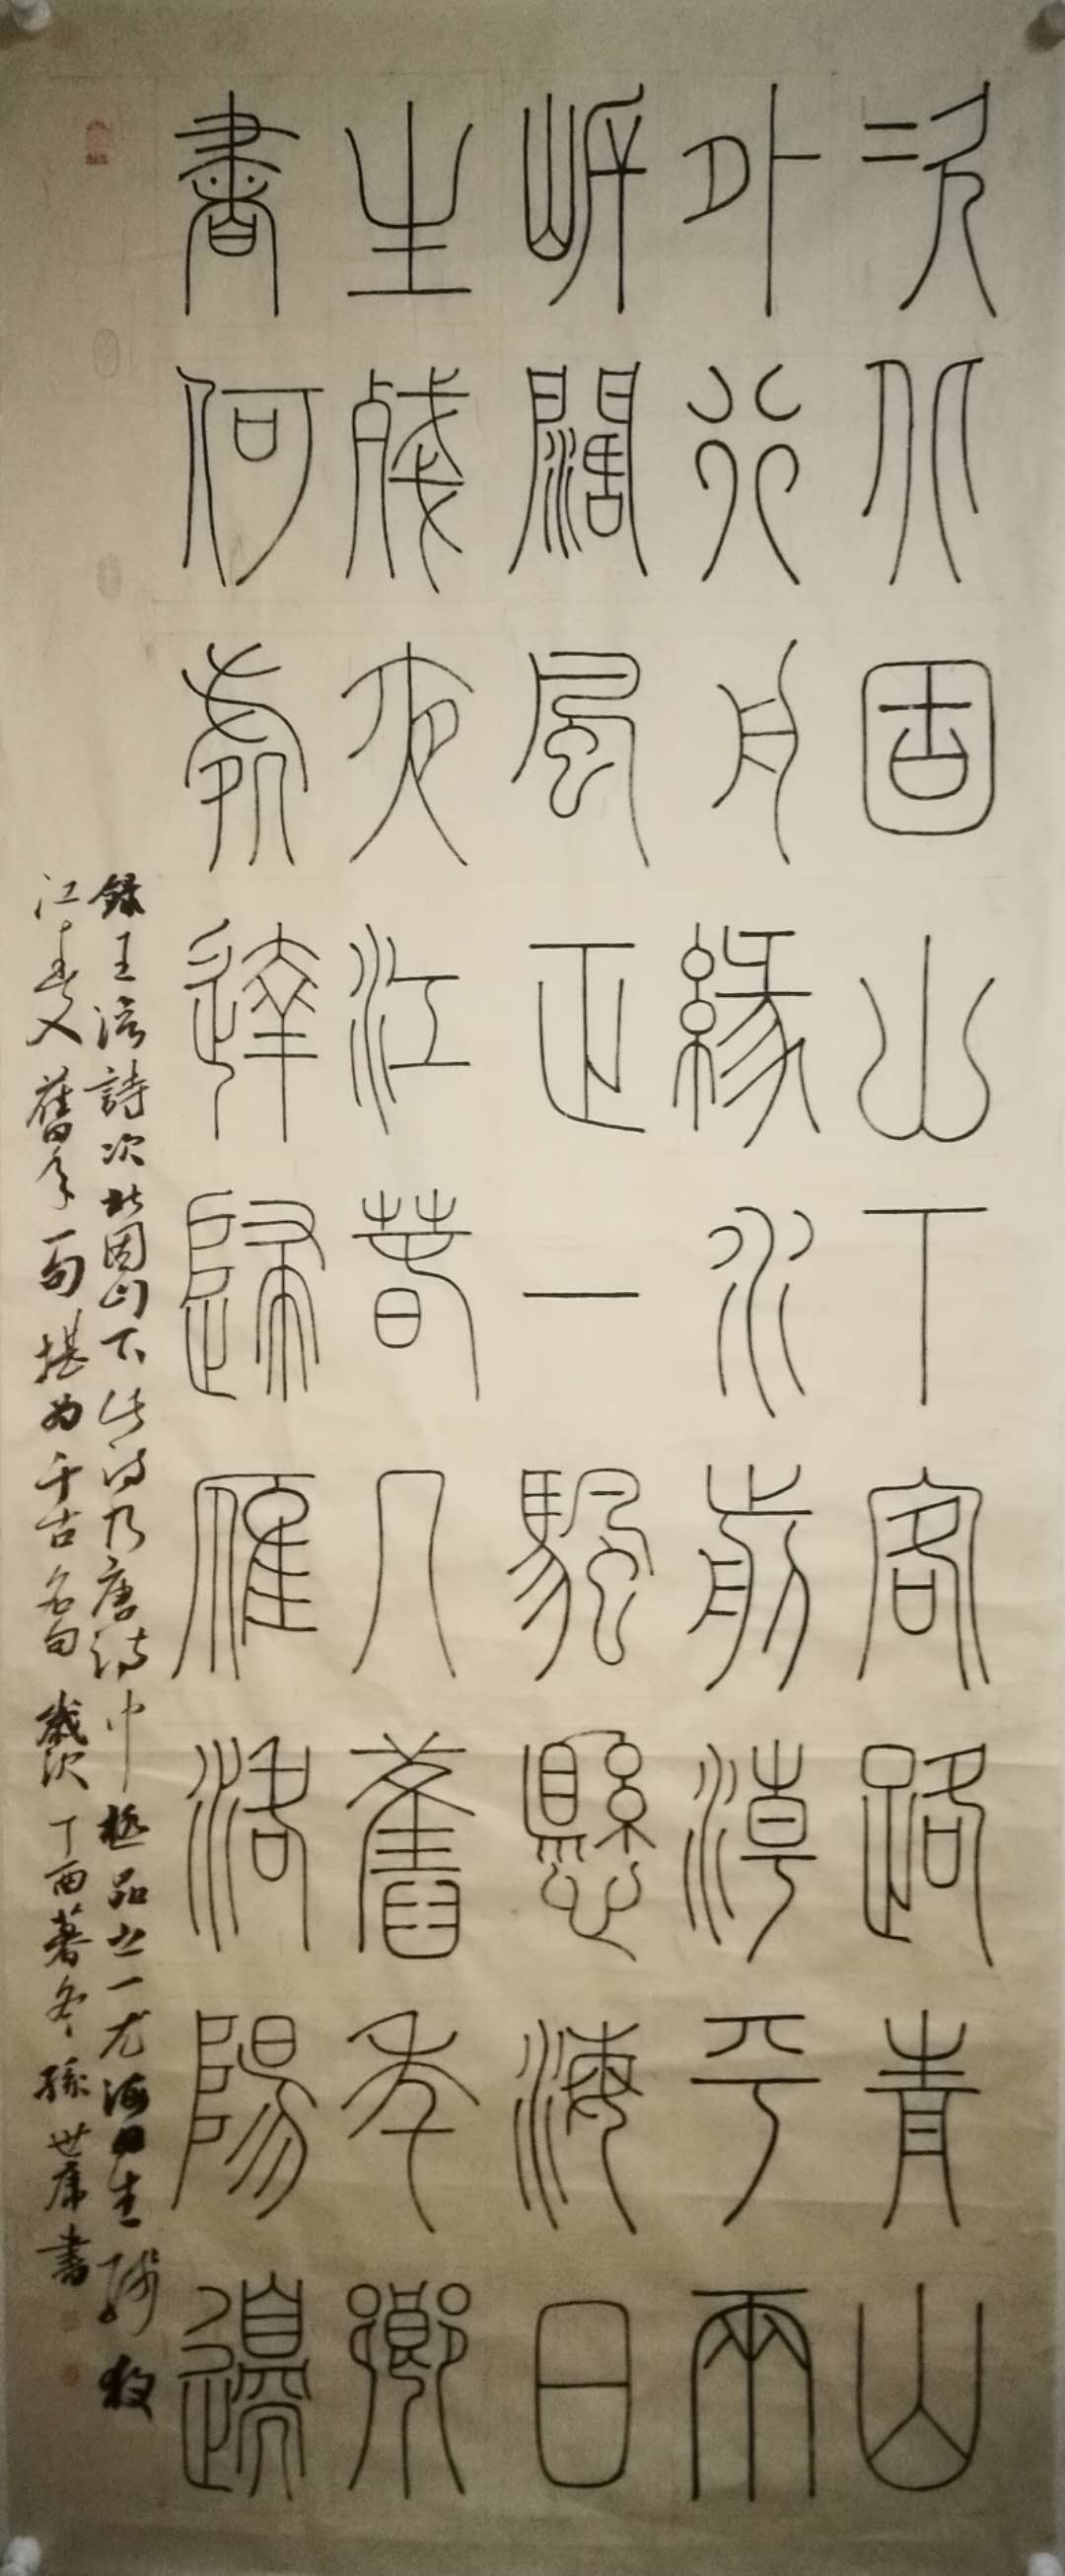 次北固山下客路青山
外行舟綠水前潮平兩
岸闊風正一颿懸海日
生殘夜江春入舊年鄉
書何處達歸雁洛陽邊
錄王灣詩次北固山下此诗乃唐诗中極品之一尤海日生殘夜
江春入舊年句堪为千古名句歲次丁酉暮冬孫世書